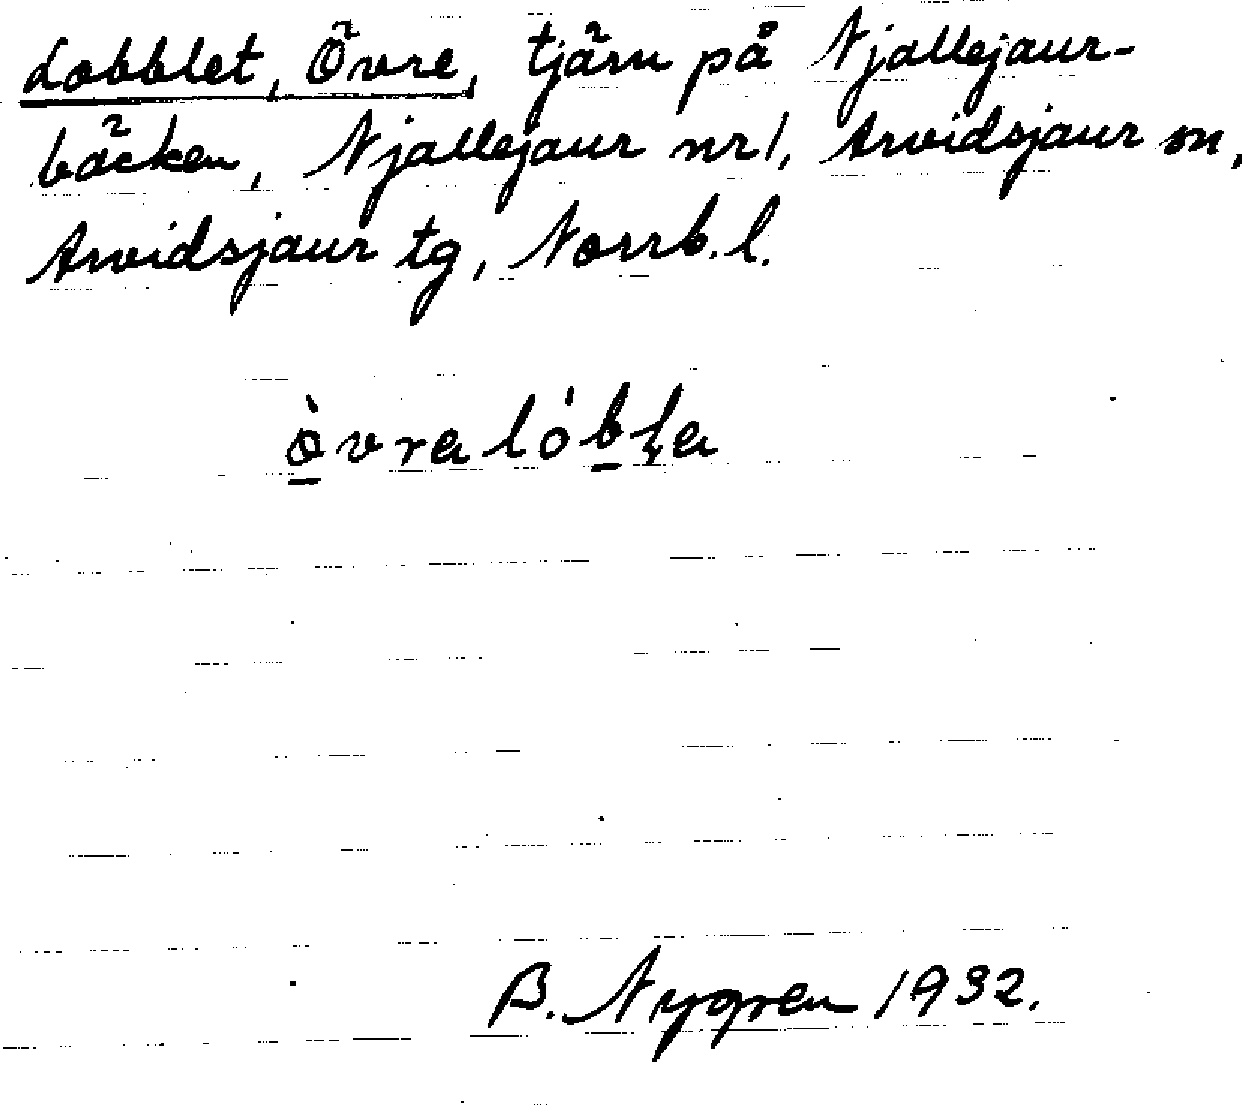 Lobblet, Övre, tjärn på Njallejaur-
bäcken, Njallejaur nr 1, Arvidsjaur sn,
Arvidsjaur tg, Norrb. l.
ò̱vra lóḇḷa
B. Nygren 1932.